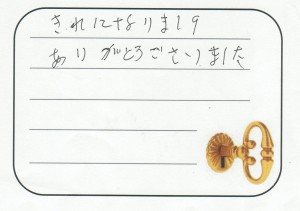 きれになりまし
ありがとうございりました